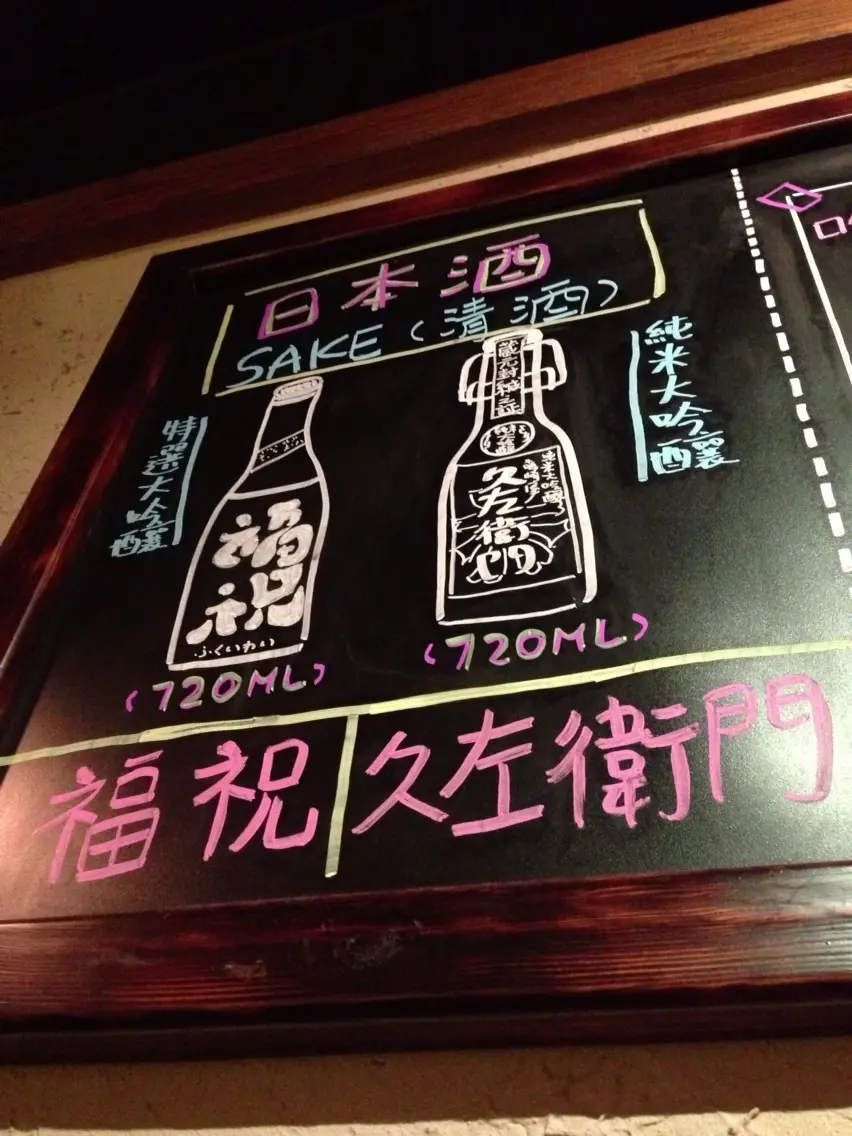 日本酒
SAKE（清酒）
特選大吟釀
福祝
ふくいわい
(720ML)
純米大吟釀
蔵元封緘之証
純米大吟醸
久左衛門
(720ML)
福祝
久左衛門
口